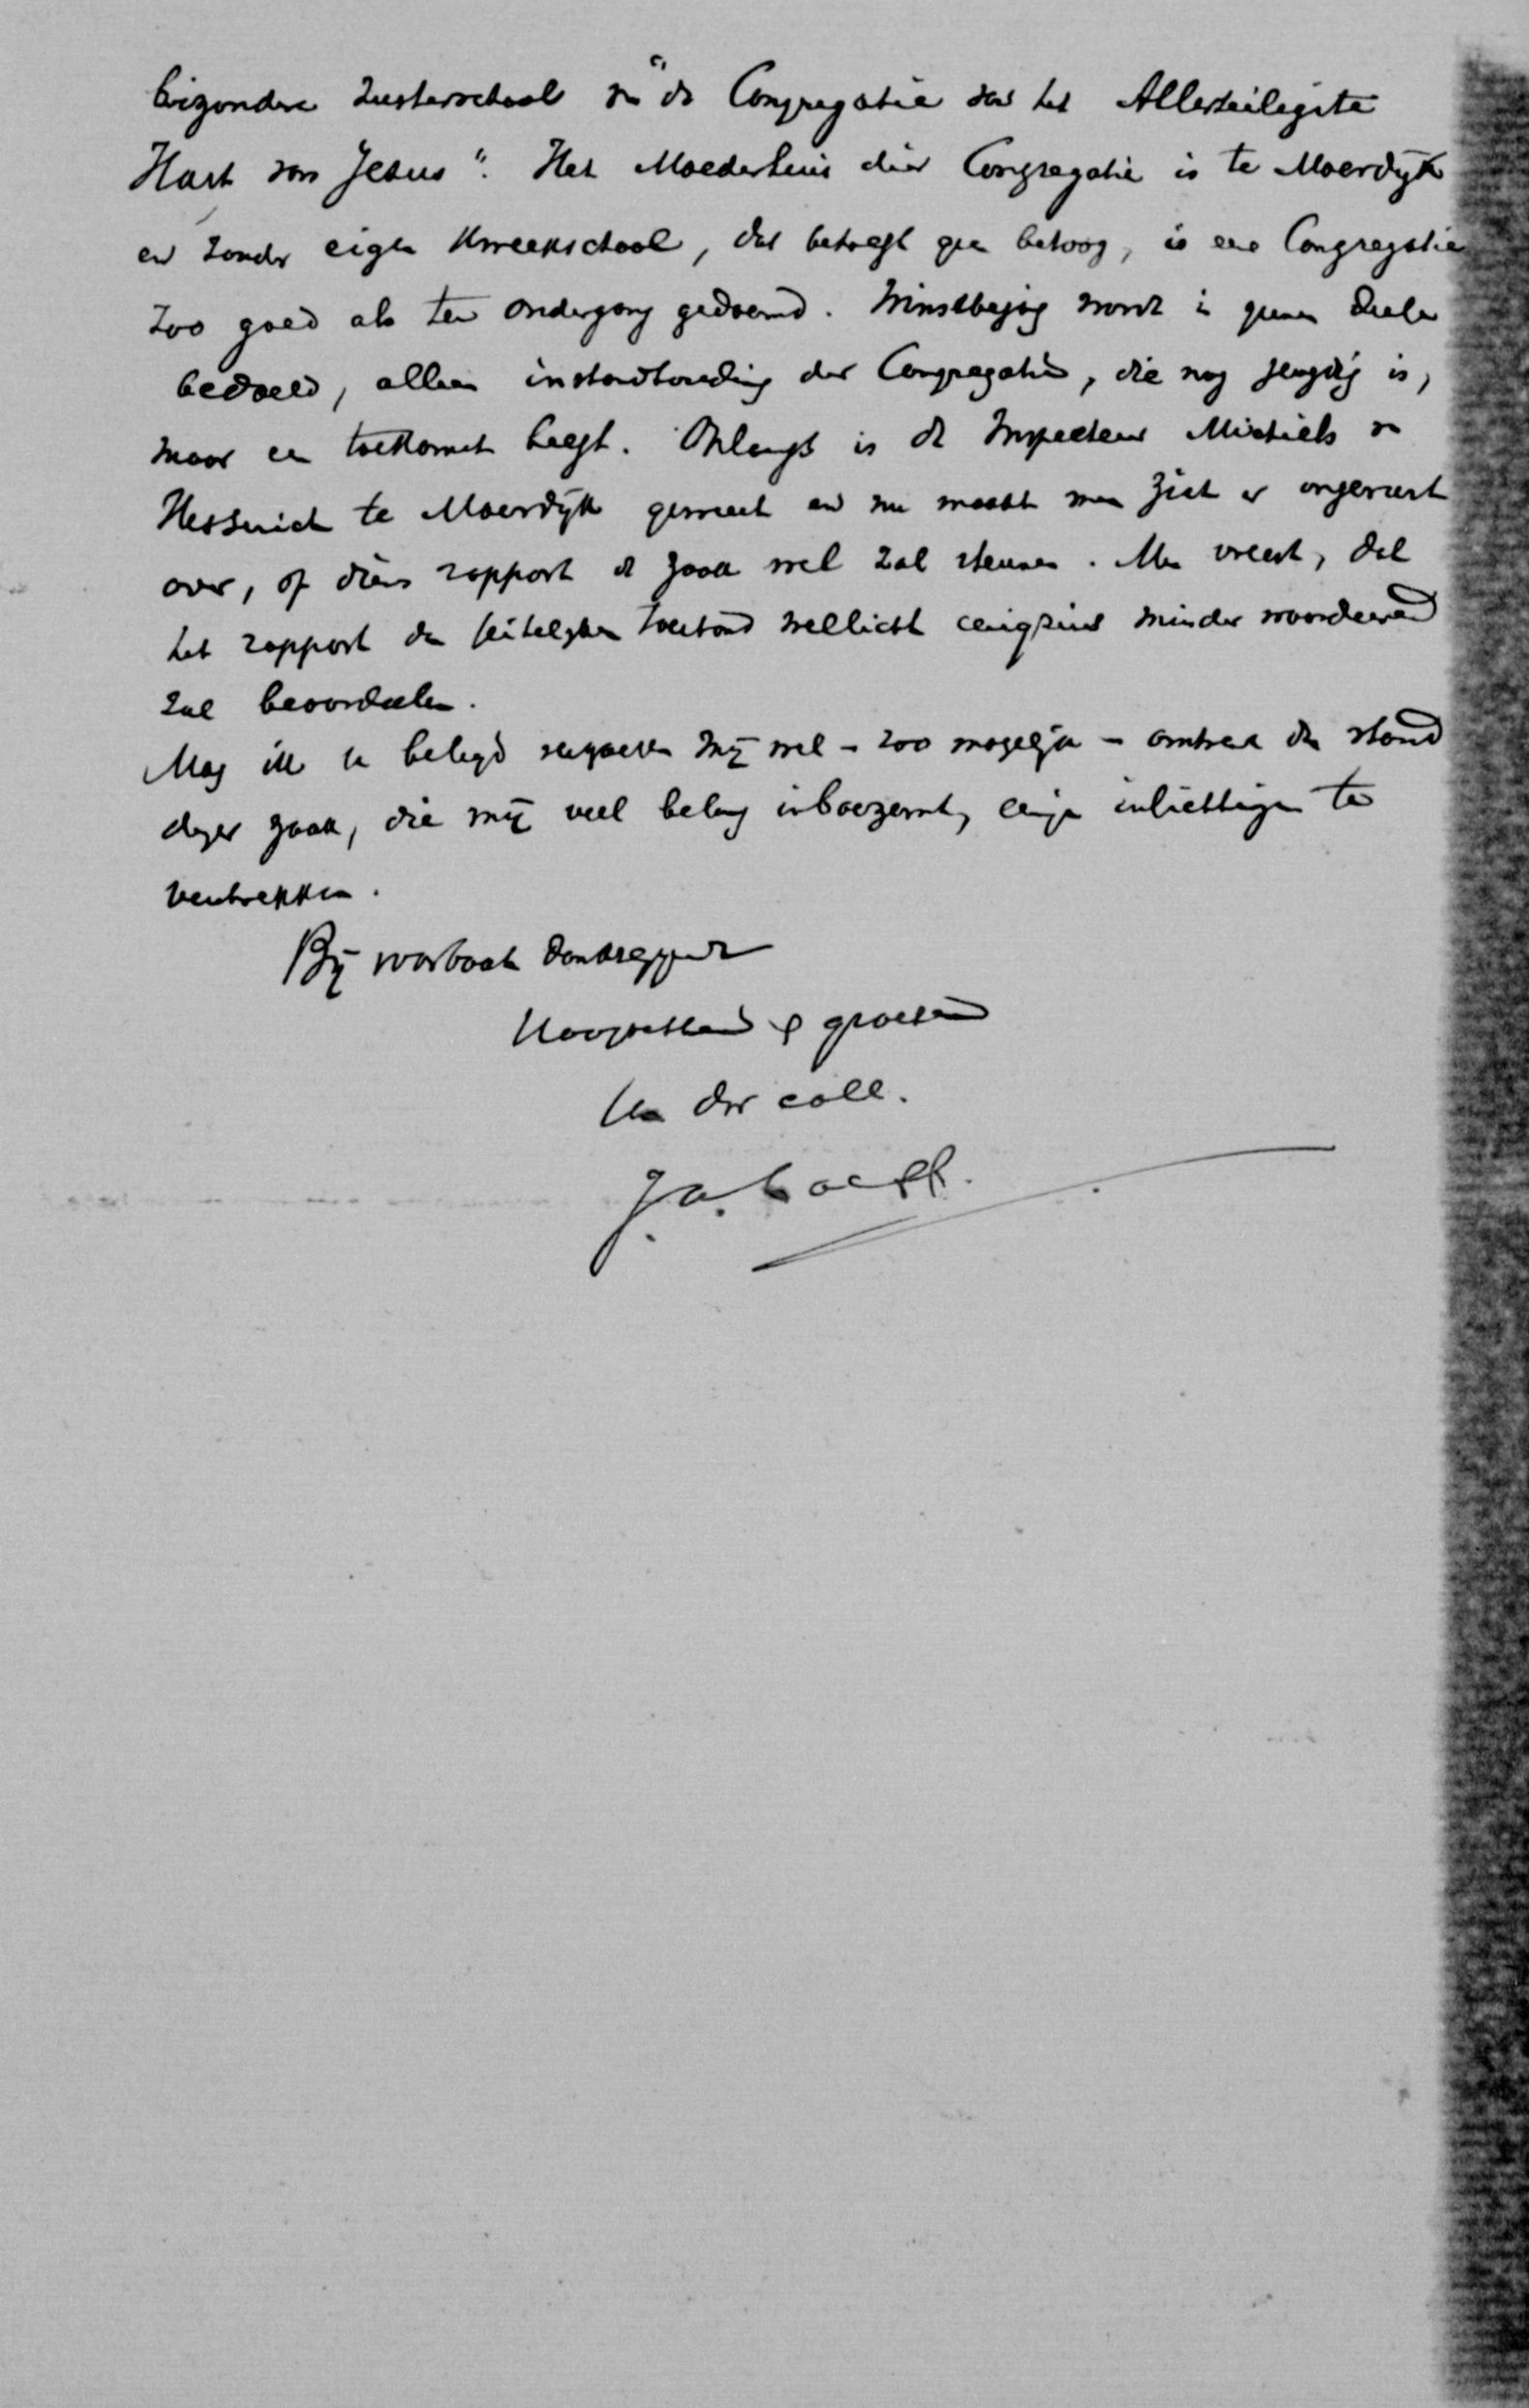 bizondere Zusterschool v. "de Congregatie van het Allerheiligste
Hart van Jesus". Het Moederhuis dier Congregatie is te Moerdijk
en zonder eigen Kweekschool, dat behoeft geen betoog, is eene Congregatie
zoo goed als ten ondergang gedoemd. Winstbejag wordt in geenen deele
bedoeld, alleen instandhouding der Congregatie, die nog jeugdig is,
maar een toekomst heeft. Onlangs is de Inspecteur Michiels v.
te Moerdijk geweest en nu maakt men zich er ongerust
over, of diens rapport de zaak wel zal steunen. Men vreest, dat
het rapport den feitelijken toestand wellicht eenigzins minder waardeerend
zal beoordeelen.
Mag ik u beleefd verzoeken mij wel - zoo mogelijk - omtrent den stand
dezer zaak, die mij veel belang inboezemt, eenige inlichtingen te
verstrekken.
Bij voorbaat dankzeggend
Hoogachtend & groetend
Uw dw coll.